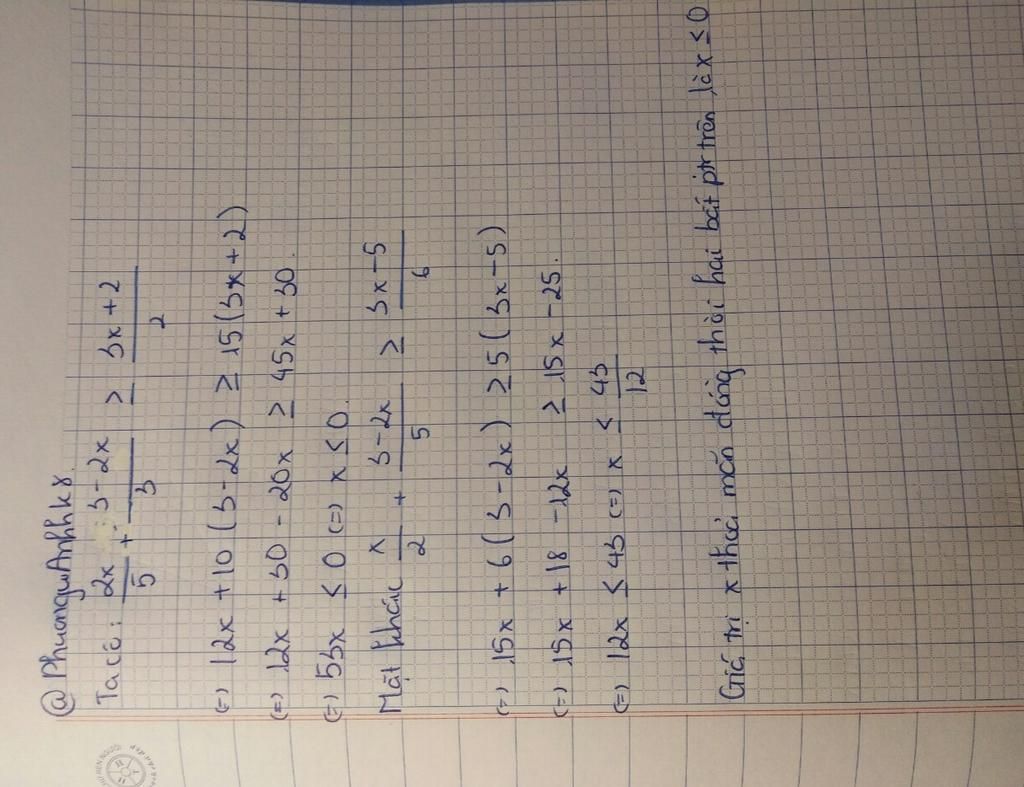 @PhuongwAnhhk8.
Ta có : 2x/5 + 3-2x/3 ≥ 3x+2/2
(=) 12x + 10 (3-2x) ≥ 15 (3x+2)
(=) 12x + 30 - 20x ≥ 45x + 30.
(=) 53x ≤ 0 (=) x ≤ 0.
Mặt khác x/2 + 3-2x/5 ≥ 3x-5/6
(=) 15x + 6 (3-2x) ≥ 5 (3x-5)
(=) 15x + 18 - 12x ≥ 15x - 25.
(=) 12x ≤ 43 (=) x ≤ 43/12
Giá trị x thoả mãn đồng thời hai bất ptr trên là x ≤ 0